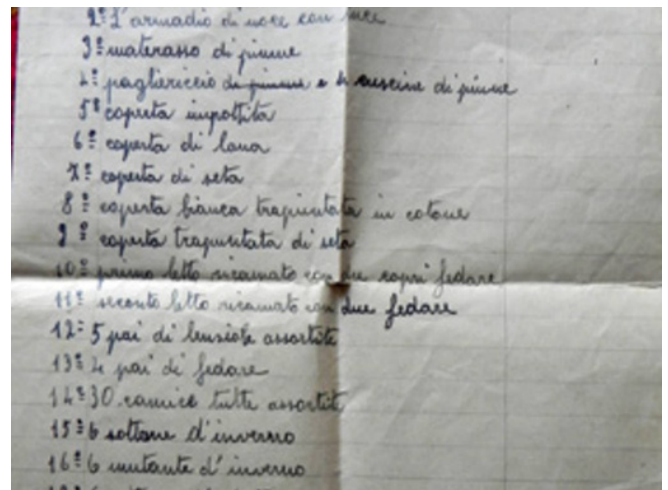 2º L'armadio di noce con luce
3º materasso di piume
4º pagliericcio di piume e 4 cuscine di piume
5º coperta impottita
6º coperta di lana
7º coperta di seta
8º coperta bianca trapuntata in cotone
9º coperta trapuntata di seta
10º primo letto ricamato con due copri fedare
11º secondo letto ricamato con due fedare
12º 5 pai di lensiole assortite
13º 4 pai di fedare
14º 30 camice tutte assortite
15º 6 sottane d'inverno
16º 6 mutante d'inverno